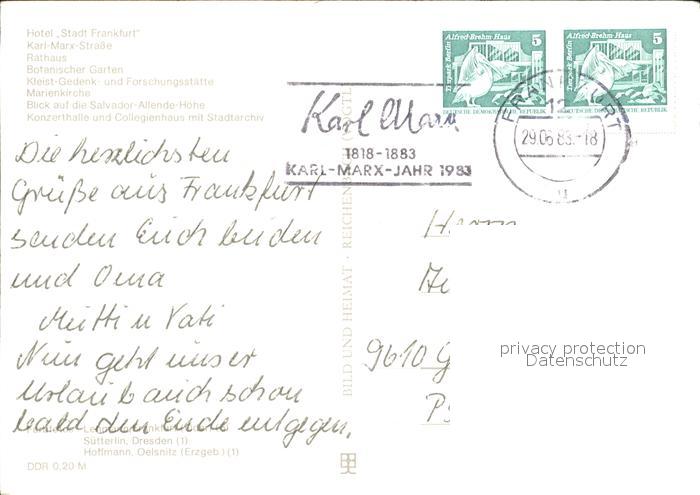 Hotel „Stadt Frankfurt"
Karl-Marx-Straße
Rathaus
Botanischer Garten
Kleist-Gedenk- und Forschungsstätte
Marienkirche
Blick auf die Salvador-Allende-Höhe
Konzerthalle und Collegienhaus mit Stadtarchiv
Die herzlichsten
Grüße aus Frankfurt
senden Euch beiden
und Oma
Mutti u Vati
Nun geht unser
Urlaub auch schon
bald dem Ende entgegen.
Sütterlin, Dresden (1)
Hoffmann, Oelsnitz (Erzgeb.) (1)
DDR 0,20 M
BILD UND HEIMAT · REICHENB
Karl Marx
1818-1883
KARL-MARX-JAHR 1983
Alfred-Brehm-Haus 5
Tierpark Berlin
DEUTSCHE DEMOKRATISCHE REPUBLIK
Alfred-Brehm-Haus 5
Tierpark Berlin
DEUTSCHE DEMOKRATISCHE REPUBLIK
FRANKFURT
12
29.06.83.-18
Herrn
9610 G
privacy protection
Datenschutz